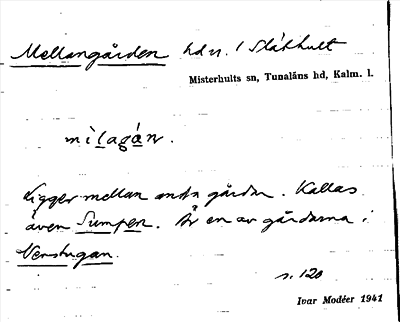 Mellangården hdn. i Släthult
Misterhults sn, Tunaläns hd, Kalm. l.
mìlagán.
Ligger mellan andra gårdar. Kallas
även Sumpen. Är en av gårdarna i
Verstugan.
s. 120
Ivar Modéer 1941